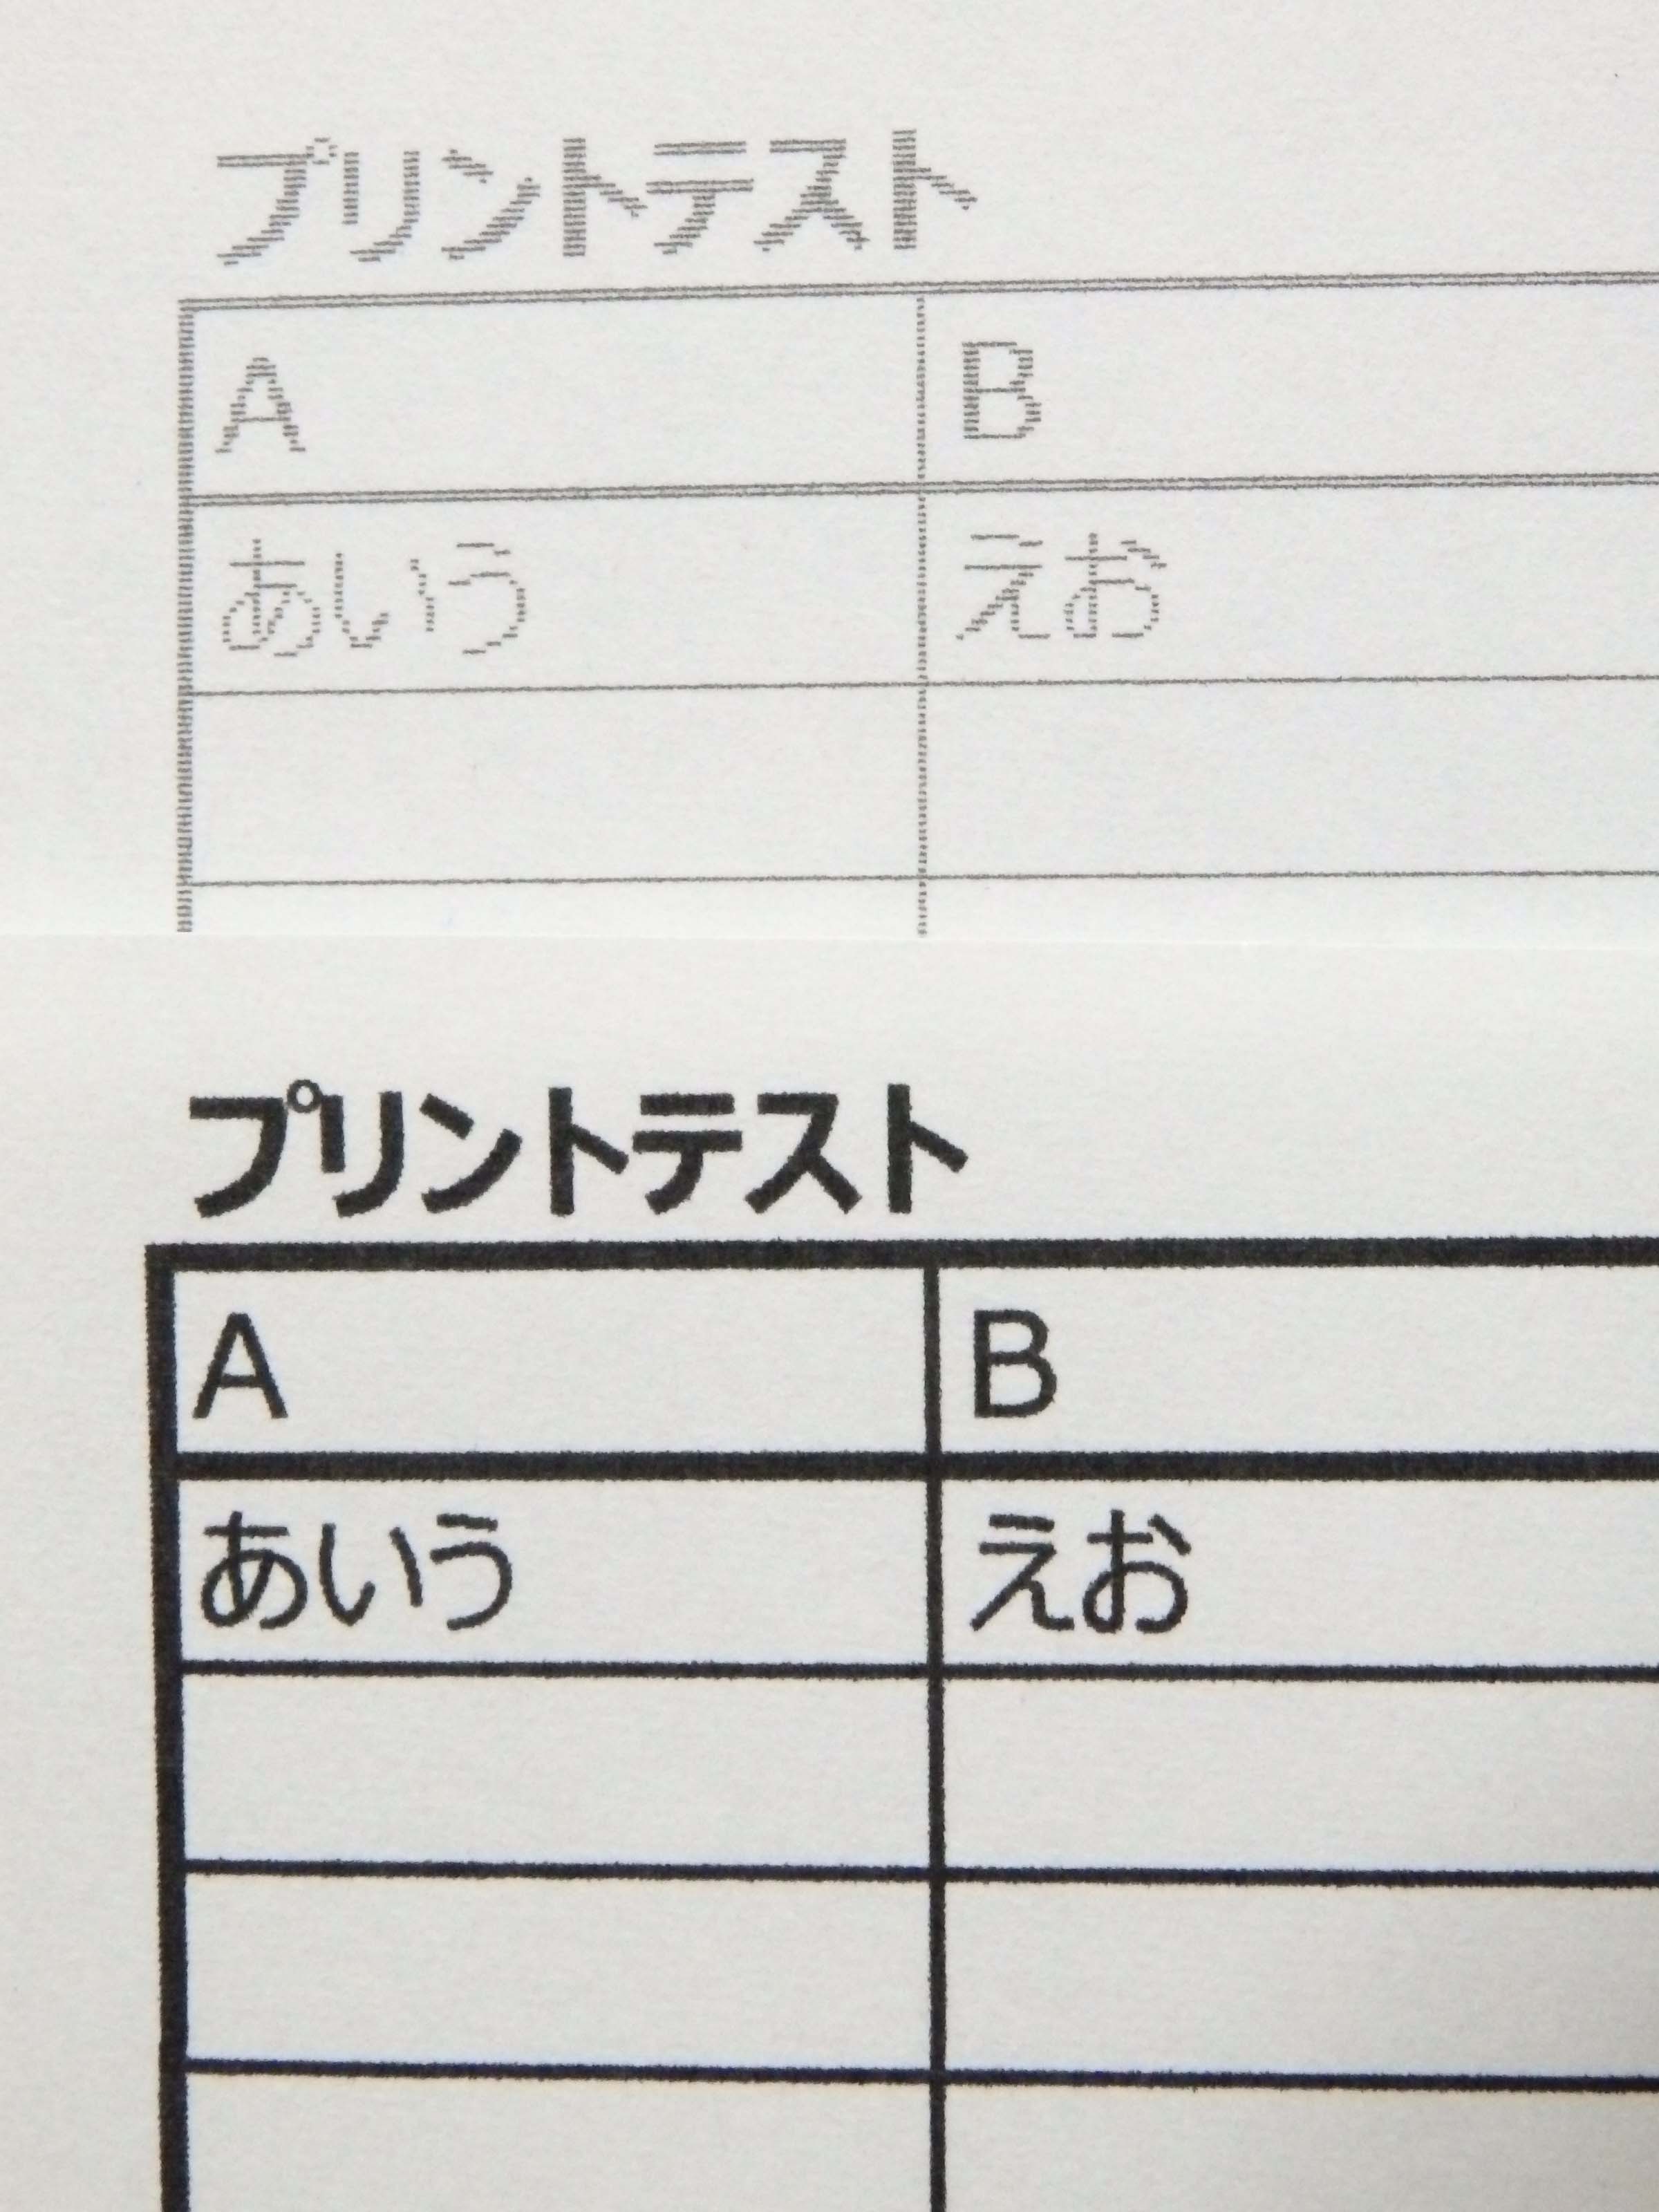 プリントテスト
A B
あいう えお
プリントテスト
A B
あいう えお